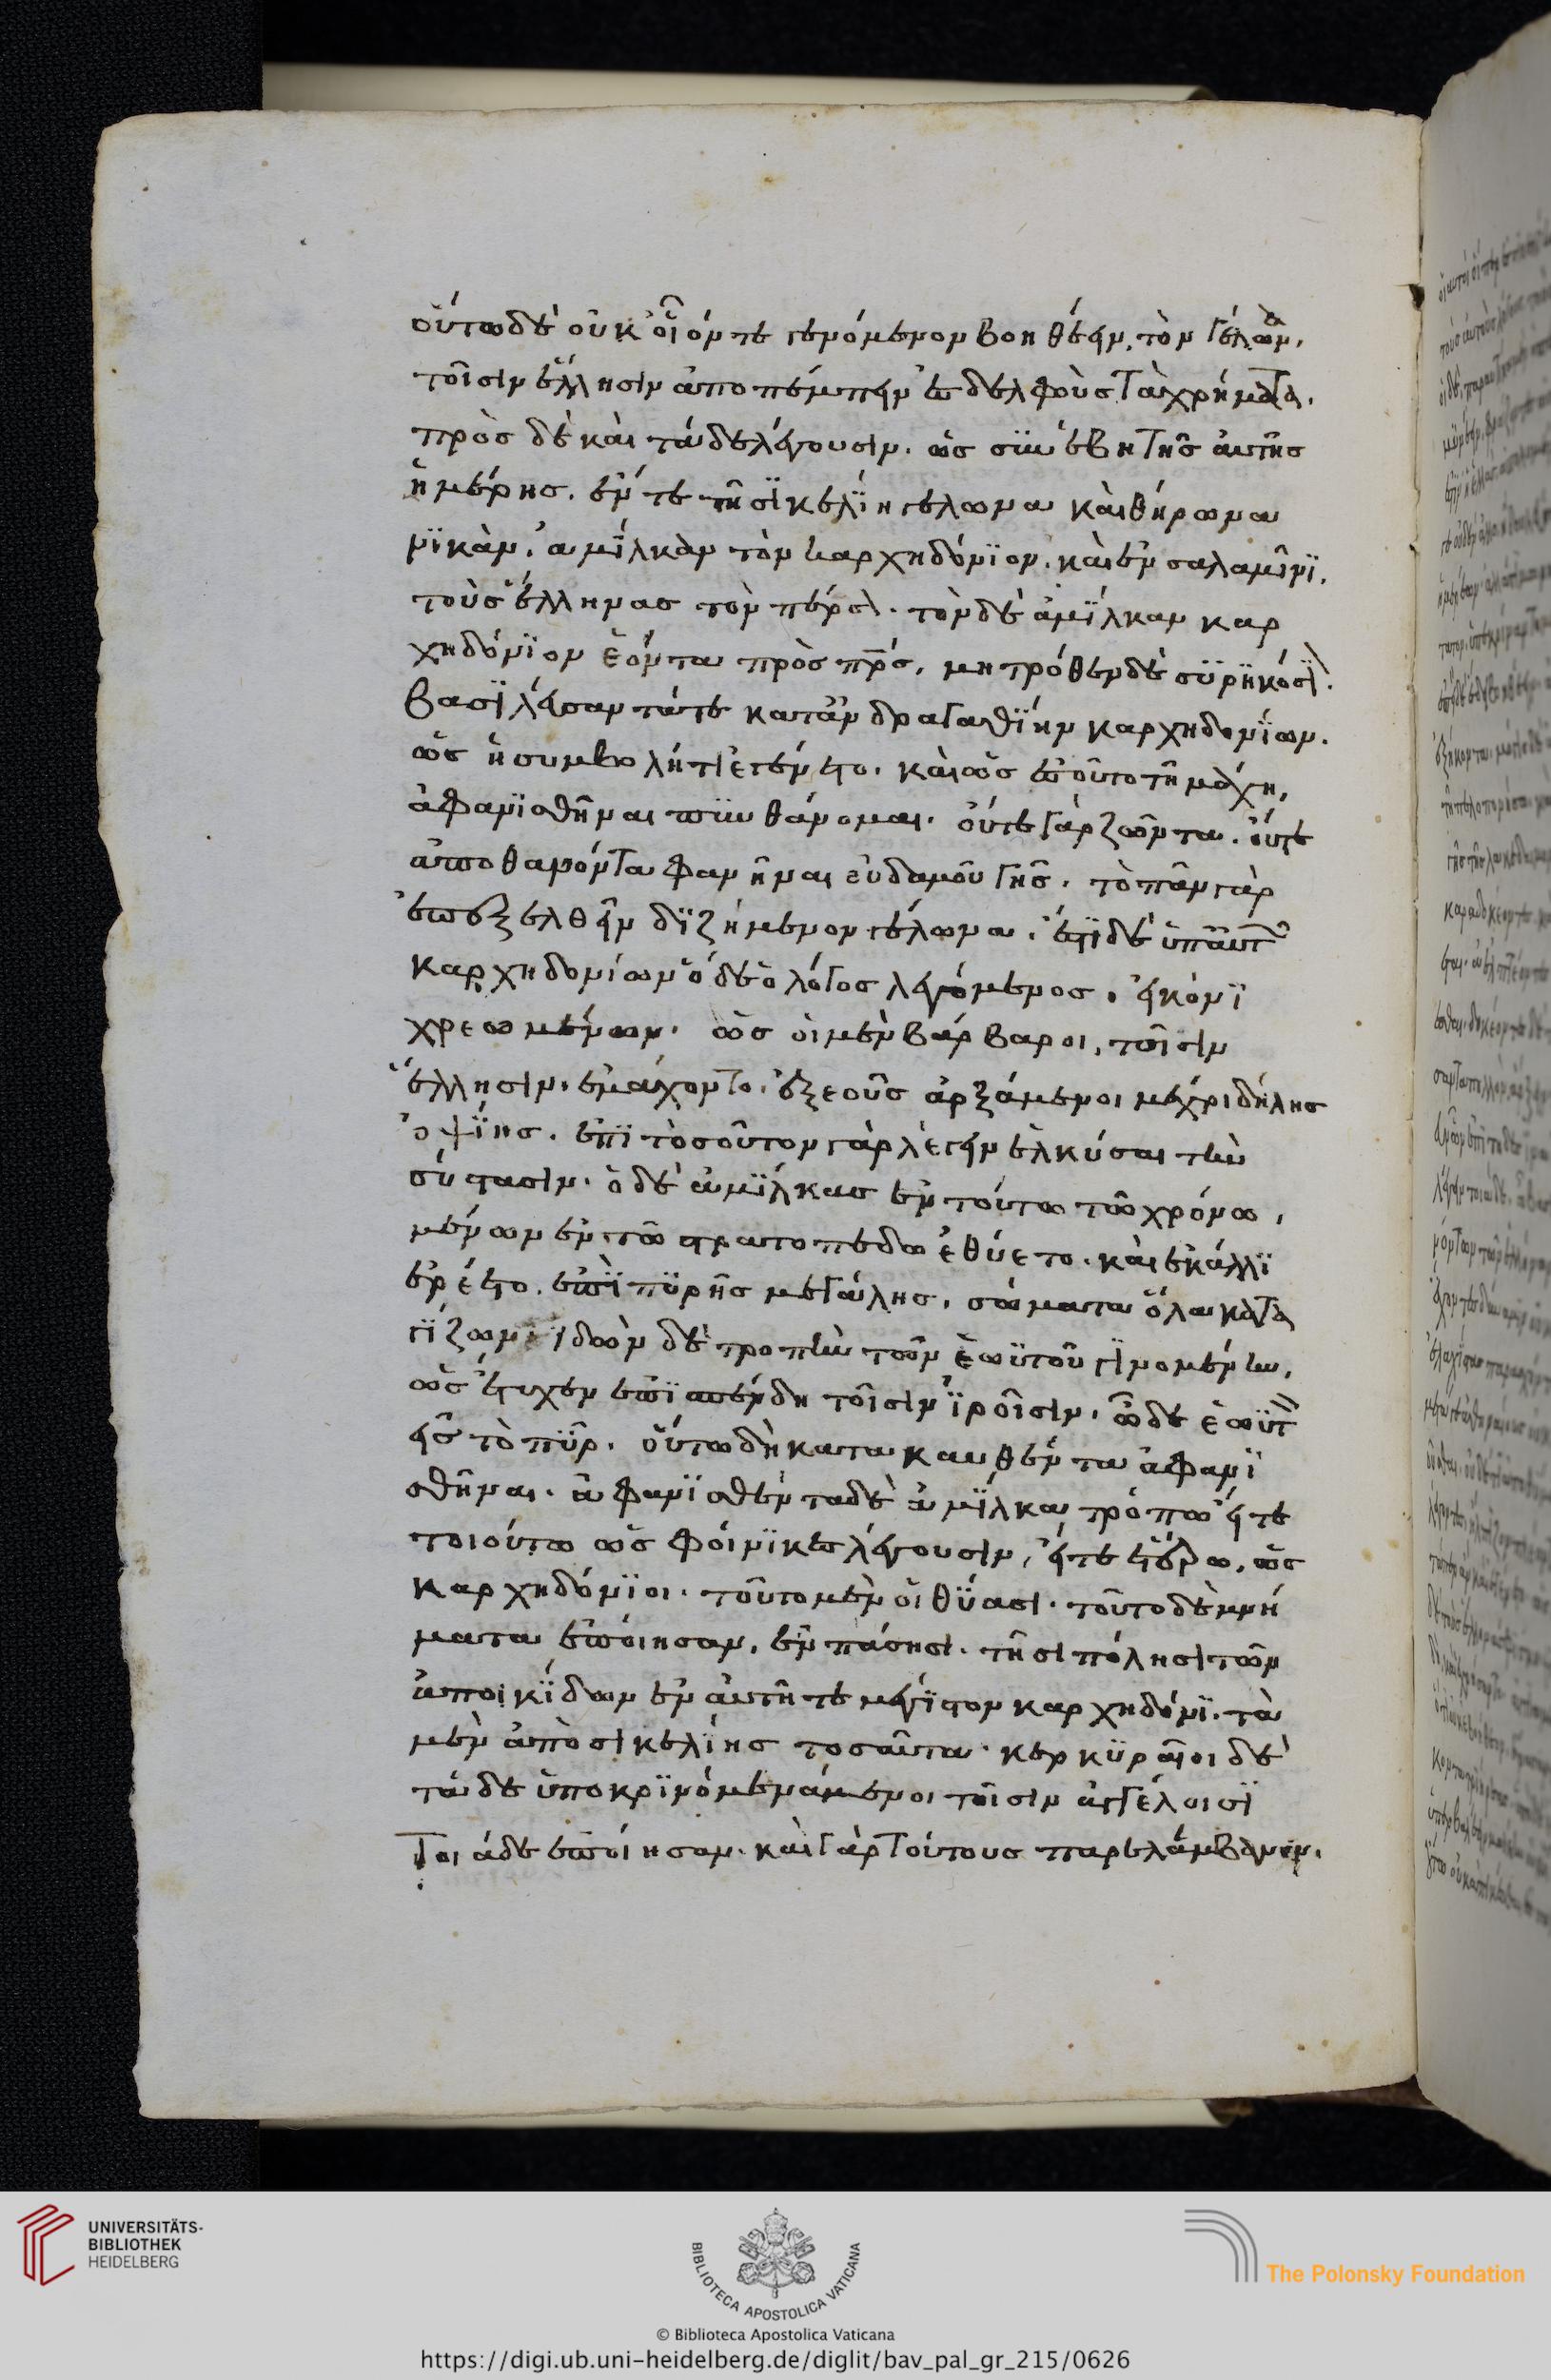 οὕτω δὲ οὐκ οἷόν τε γενόμενον βοηθέειν. τὸν γέλων,
τοῖσιν ἕλλησιν ἀποπέμπειν ἐς δελφοὺς τὰ χρήματα.
πρὸς δὲ καὶ τάδε λέγουσιν. ὡς συνέβη τῆς αὐτῆς
ἡμέρης. ἔν τε τῇ σϊκελΐη γέλωνα καὶ θήρωνα
νϊκὰν. ἀμίλκαν τὸν καρχηδόνϊον. καὶ ἐν σαλαμῖνϊ.
τοὺς ἕλληνας τὸν πέρσ. τὸν δὲ ἀμΐλκαν καρ
χηδόνϊον ἐόντα πρὸς πρς, μητρόθεν δὲ συρηκόσϊ.
βασϊλεύσαντά τε κατ ἀνδραγαθΐην καρχηδονΐων.
ὡς ἡ συμβολή τε ἐγένετο. καὶ ὡς ἑσσοῦτο τῇ μάχη,
ἀφανϊσθῆναι πυνθάνομαι. οὔτε γὰρ ζῶντα. οὔτε
ἀποθανόντα φανῆναι οὐδαμοῦ γῆς. τὸ πᾶν γὰρ
ἐπεξελθεῖν δϊζήμενον γέλωνα. ἔστϊ δὲ ὑπ αὐτ
καρχηδονίων ὅδε ὁ λόγος λεγόμενος. εἰκόνϊ
χρεωμένων. ὡς οἱ μὲν βάρβαροι, τοῖσιν
ἕλλησιν. ἐμάχοντο. ἐξ ἐοῦς ἀρξάμενοι μέχρι δείλης
ὀψΐης. ἐπὶ τοσοῦτον γὰρ λέγειν ἑλκύσαι τὴν
σύστασιν. ὁ δὲ ἀμΐλκας ἐν τούτω τῶ χρόνω,
μένων ἐν τῶ στρατοπέδω ἐθύετο. καὶ ἐκαλλϊ
ερέετο. ἐπὶ πϋρῆς μεγάλης, σώματα ὅλα καTα
γϊζων. ἰδὼν δὲ τροπὴν τῶν ἑωϋτοῦ γινομένην,
ὡς ἔτυχεν ἐπϊσπένδη τοῖσιν ϊροῖσιν. ὦδε ἑωϋτ
ἐς τὸ πῦρ. οὕτω δὴ κατακαυθέντα ἀφανϊ
σθῆναι. ἀφανϊσθέντα δὲ ἀμΐλκα τρόπω εἴτε
τοιούτω ὡς φοίνϊκες λέγουσιν, εἴτε ἑτέρω, ὡς
καρχηδόνϊοι. τοῦτο μὲν οἱ θϋασι. τοῦτο δὲ μνή
ματα ἐποίησαν, ἐν πάσησι. τῆσι πόλησι τῶν
ἀποικΐδων ἐν αὐτῆ τε μέγϊστον καρχηδόνϊ. τὰ
μὲν ἀπὸ σικελΐης τοσαῦτα. κερκϋραῖοι δὲ
τάδε ὑποκρϊνόμενάμενοι τοῖσιν ἀγγέλοισϊ
τοιάδε ἐποίησαν. καὶ γὰρ τούτους παρελάμβανον.
UNIVERSITÄTS-
BIBLIOTHEK
HEIDELBERG
BIBLIOTECA APOSTOLICA VATICANA
The Polonsky Foundation
© Biblioteca Apostolica Vaticana
https://digi.ub.uni-heidelberg.de/diglit/bav_pal_gr_215/0626